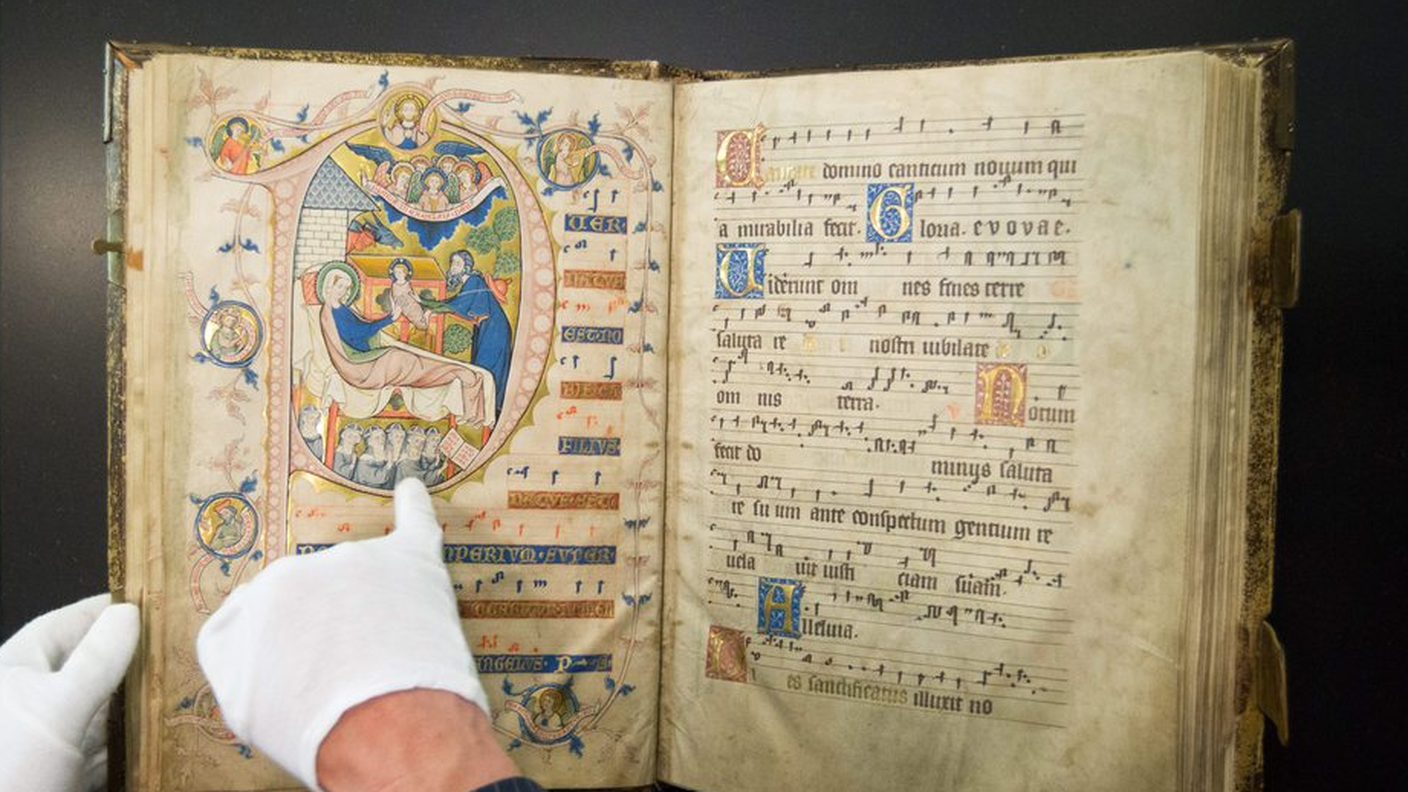 VER·
NATVS
EST·NO
BIS·ET
FILIVS·
DATVS·EST
IMPERIVM·SVPER·
ANGELVS· P
Cantate domino canticum nouum qui
a mirabilia fecit. Gloria. evovae.
Uiderunt om nes fines terre
saluta re nostri iubilate
om nis terra. Notum
fecit do minus saluta
re su um ante conspectum gentium re
uela uit iusti ciam suam.
Alleluia.
Dies sanctificatus illuxit no